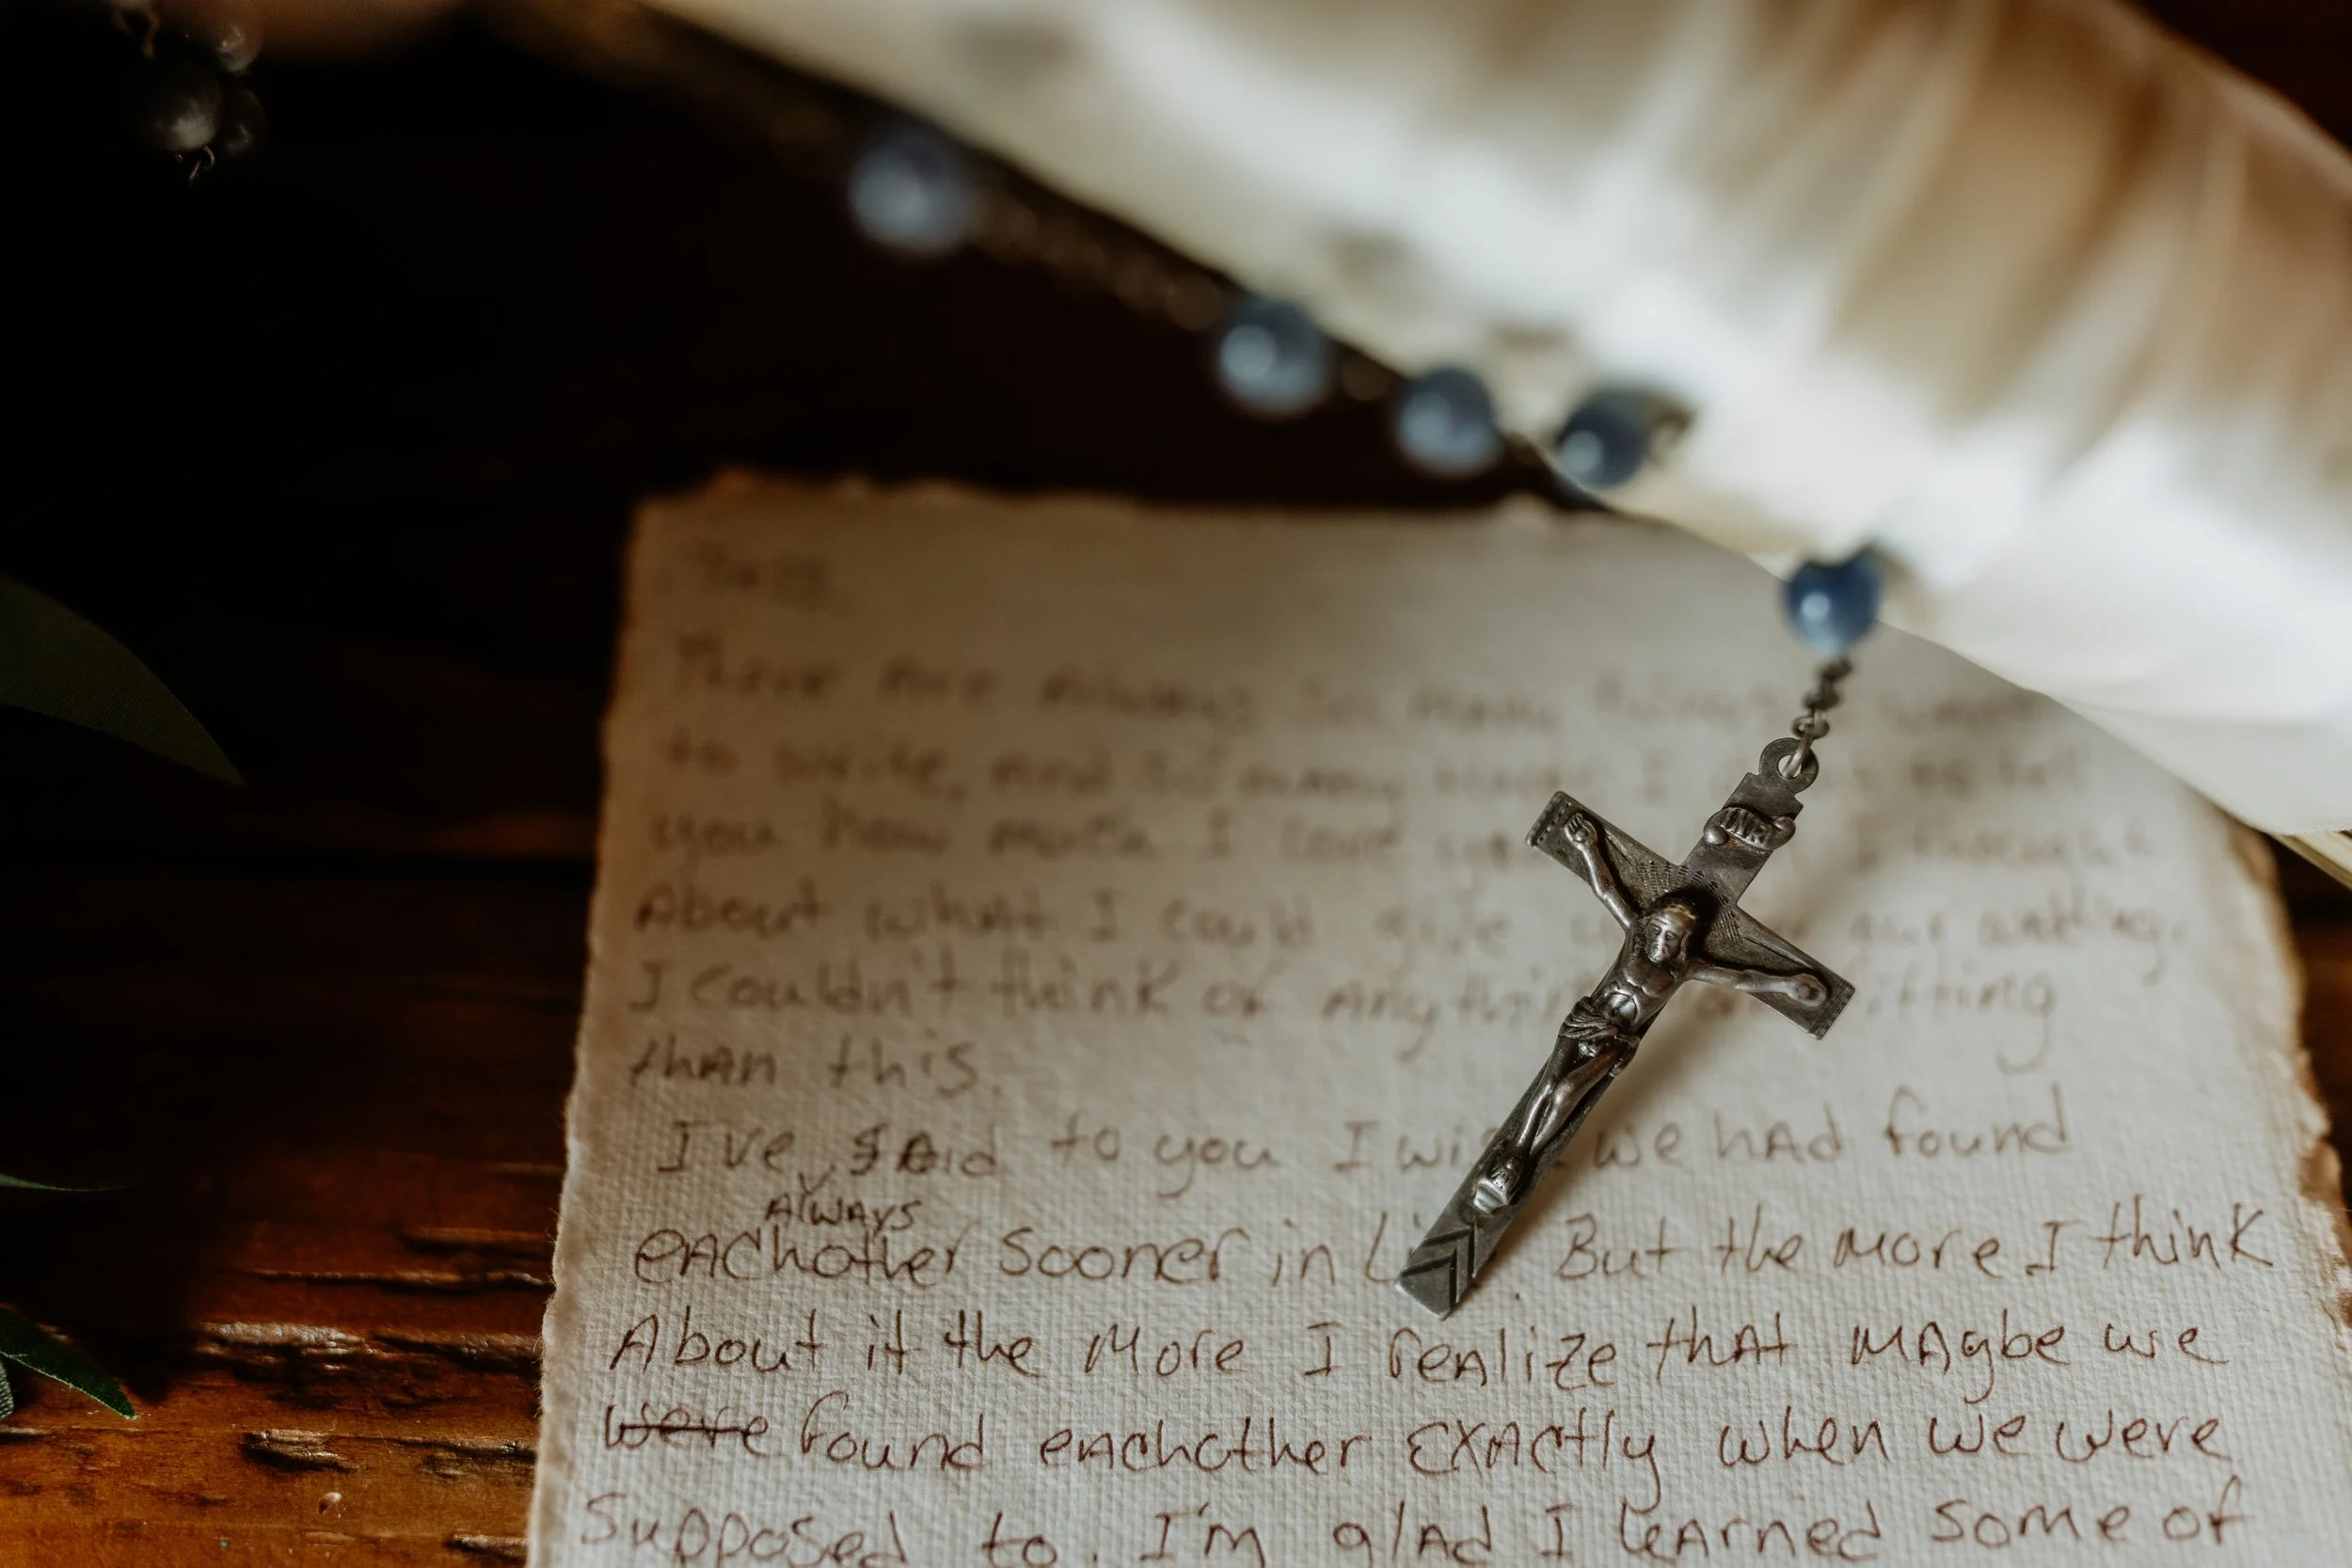 There are always so many things
to write, and so many I to tell
you how much I love I thought
About whAt I could give our wedding.
I couldn't think of Any fitting
thAn this.
I've sAid to you I we hAd found
AlwAys
eAchother sooner in But the More I think
About it the More I reAlize thAt MAybe we
were found eAchother ExActly when we were
Supposed to. I'm glAd I leArned some of
INRI